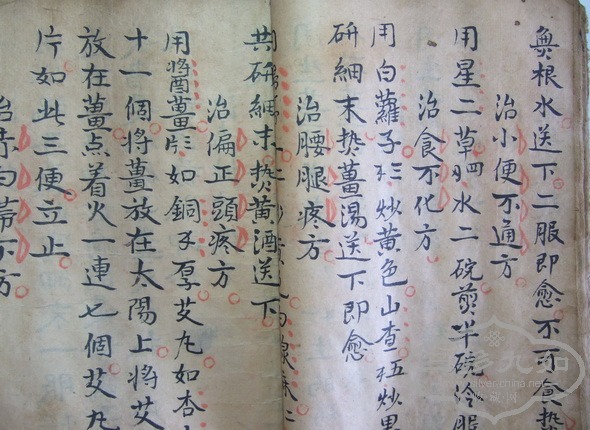 無根水送下二服即愈不可
治小便不通方
用星二草水二碗煎半碗冷服
治食不化方
用白蘿子炒黄色山查炒黑
研細末热薑湯送下即愈
治腰腿疼方
共研細末热黄酒送下
治偏正頭疼方
用醬薑片如銅子厚艾丸如杏
十一個将薑放在太陽上将艾
放在薑点着火一連七個艾丸
片如此三便立止
治赤白帶下方